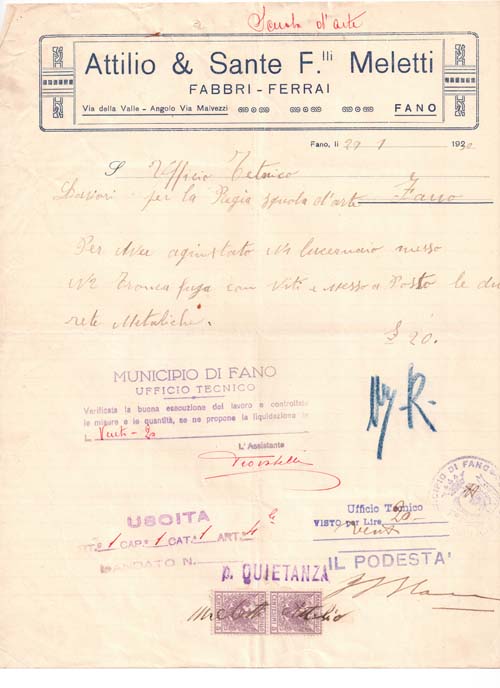 a Scuola d'arte
Attilio & Sante F.lli Meletti
FABBRI - FERRAI
Via della Valle - Angolo Via Malvezzi
FANO
Fano, li 29 1 1930
S Ufficio Tetnico
per la Regia squola d'arte Fano
Per Avee agiustato N1 lucernaio messo
N2 Tronca fuga con Viti e Messo a Posto le due
rete Metaliche. £ 20.
MUNICIPIO DI FANO
UFFICIO TECNICO
Verificata la buona esecuzione del lavoro e controllate
le misure e la quantità, se ne propone la liquidazione in
L Venti - 20
L'Assistante
USCITA
TIT.° 1 CAP. 1 CAT. 1 ART. 4
MANDATO N.
Ufficio Tecnico
VISTO per Lire 20-
venti
IL PODESTA'
p. QUIETANZA
Meletti Attilio